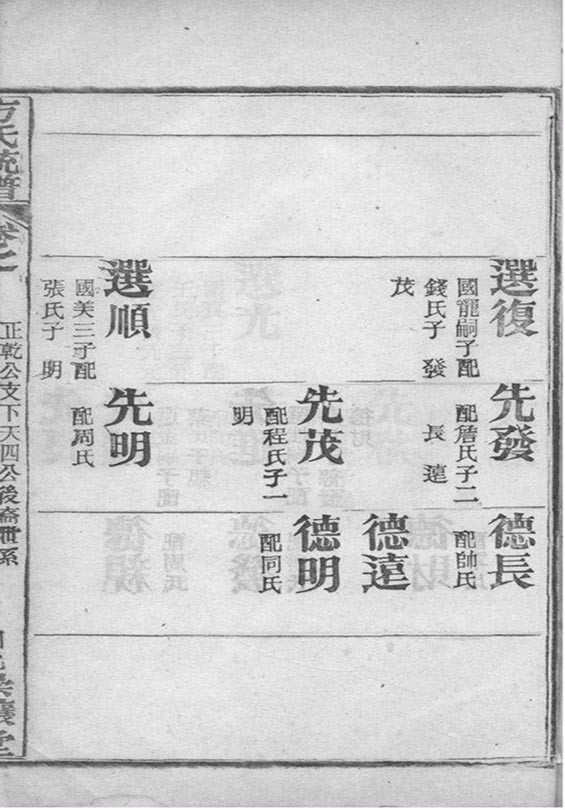 選復
國寵嗣子配
錢氏子 發
茂
選順
國美三子配
張氏子 明
先發
配詹氏子二
長 遠
先茂
配程氏子一
明
先明
配周氏
德長
配帥氏
德遠
德明
配同氏
方氏統譜
卷之
正乾公支下天四公後裔世系